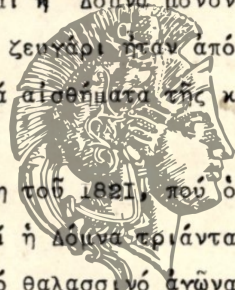 ἡ Δόμνα μόνον
ζευγάρι ἦταν ἀπό
αἰσθήματα τῆς κ
τοῦ 1821, πού ὁ
ἡ Δόμνα τριάντα
θαλασσινό ἀγῶνα